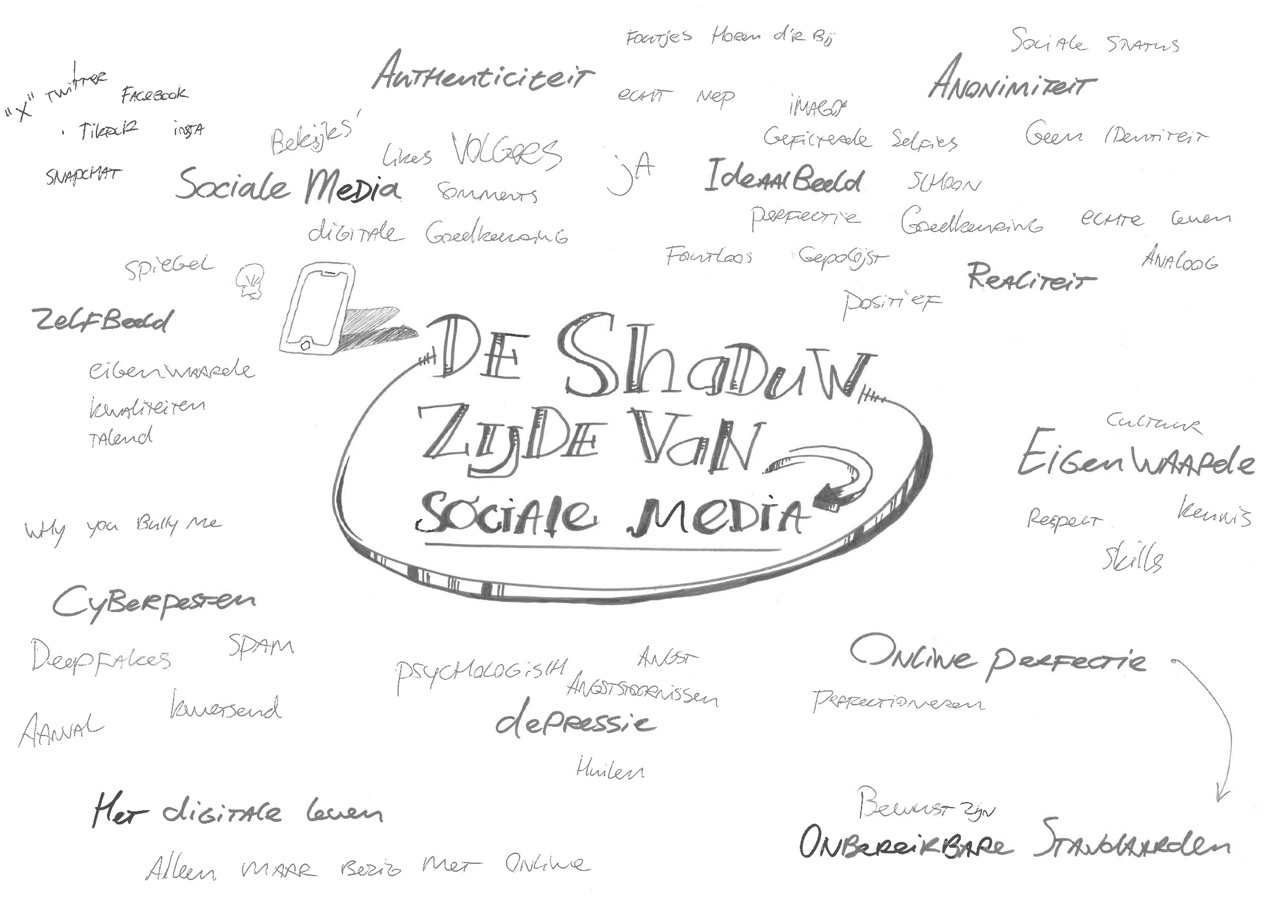 Foutjes Horen d'r Bij
Sociale Status
Authenticiteit
Anonimiteit
"X" Twitter
Facebook
echt nep
imago
Tiktok
insta
Bekijks'
Likes VOLGERS
Gefilterde Selfies
Geen IDentiteit
SNAPCHAT
Sociale Media
comments
jA
IdeaalBeeld
SCHOON
perfectie
Goedkeuring
echte leven
digitale Goedkeuring
Foutloos
Gepolijst
ANALOOG
Spiegel
Realiteit
positief
ZelfBeeld
eigenwaarde
kwaliteiten
Talend
DE ShaDuW
ZijDE VaN
sociale media
Cultuur
EigenWaarde
Respect
kennis
Skills
Why you Bully me
CyBerpesten
Deepfakes
SPAM
kwetsend
AANVAL
psychologisch
ANGST
ANGSTSTOORNISSEN
depressie
Huilen
Online perfectie
Perfectioneren
Het digitale leven
Alleen maar Bezig met Online
Bewust zijn
OnBereikBare Standaarden